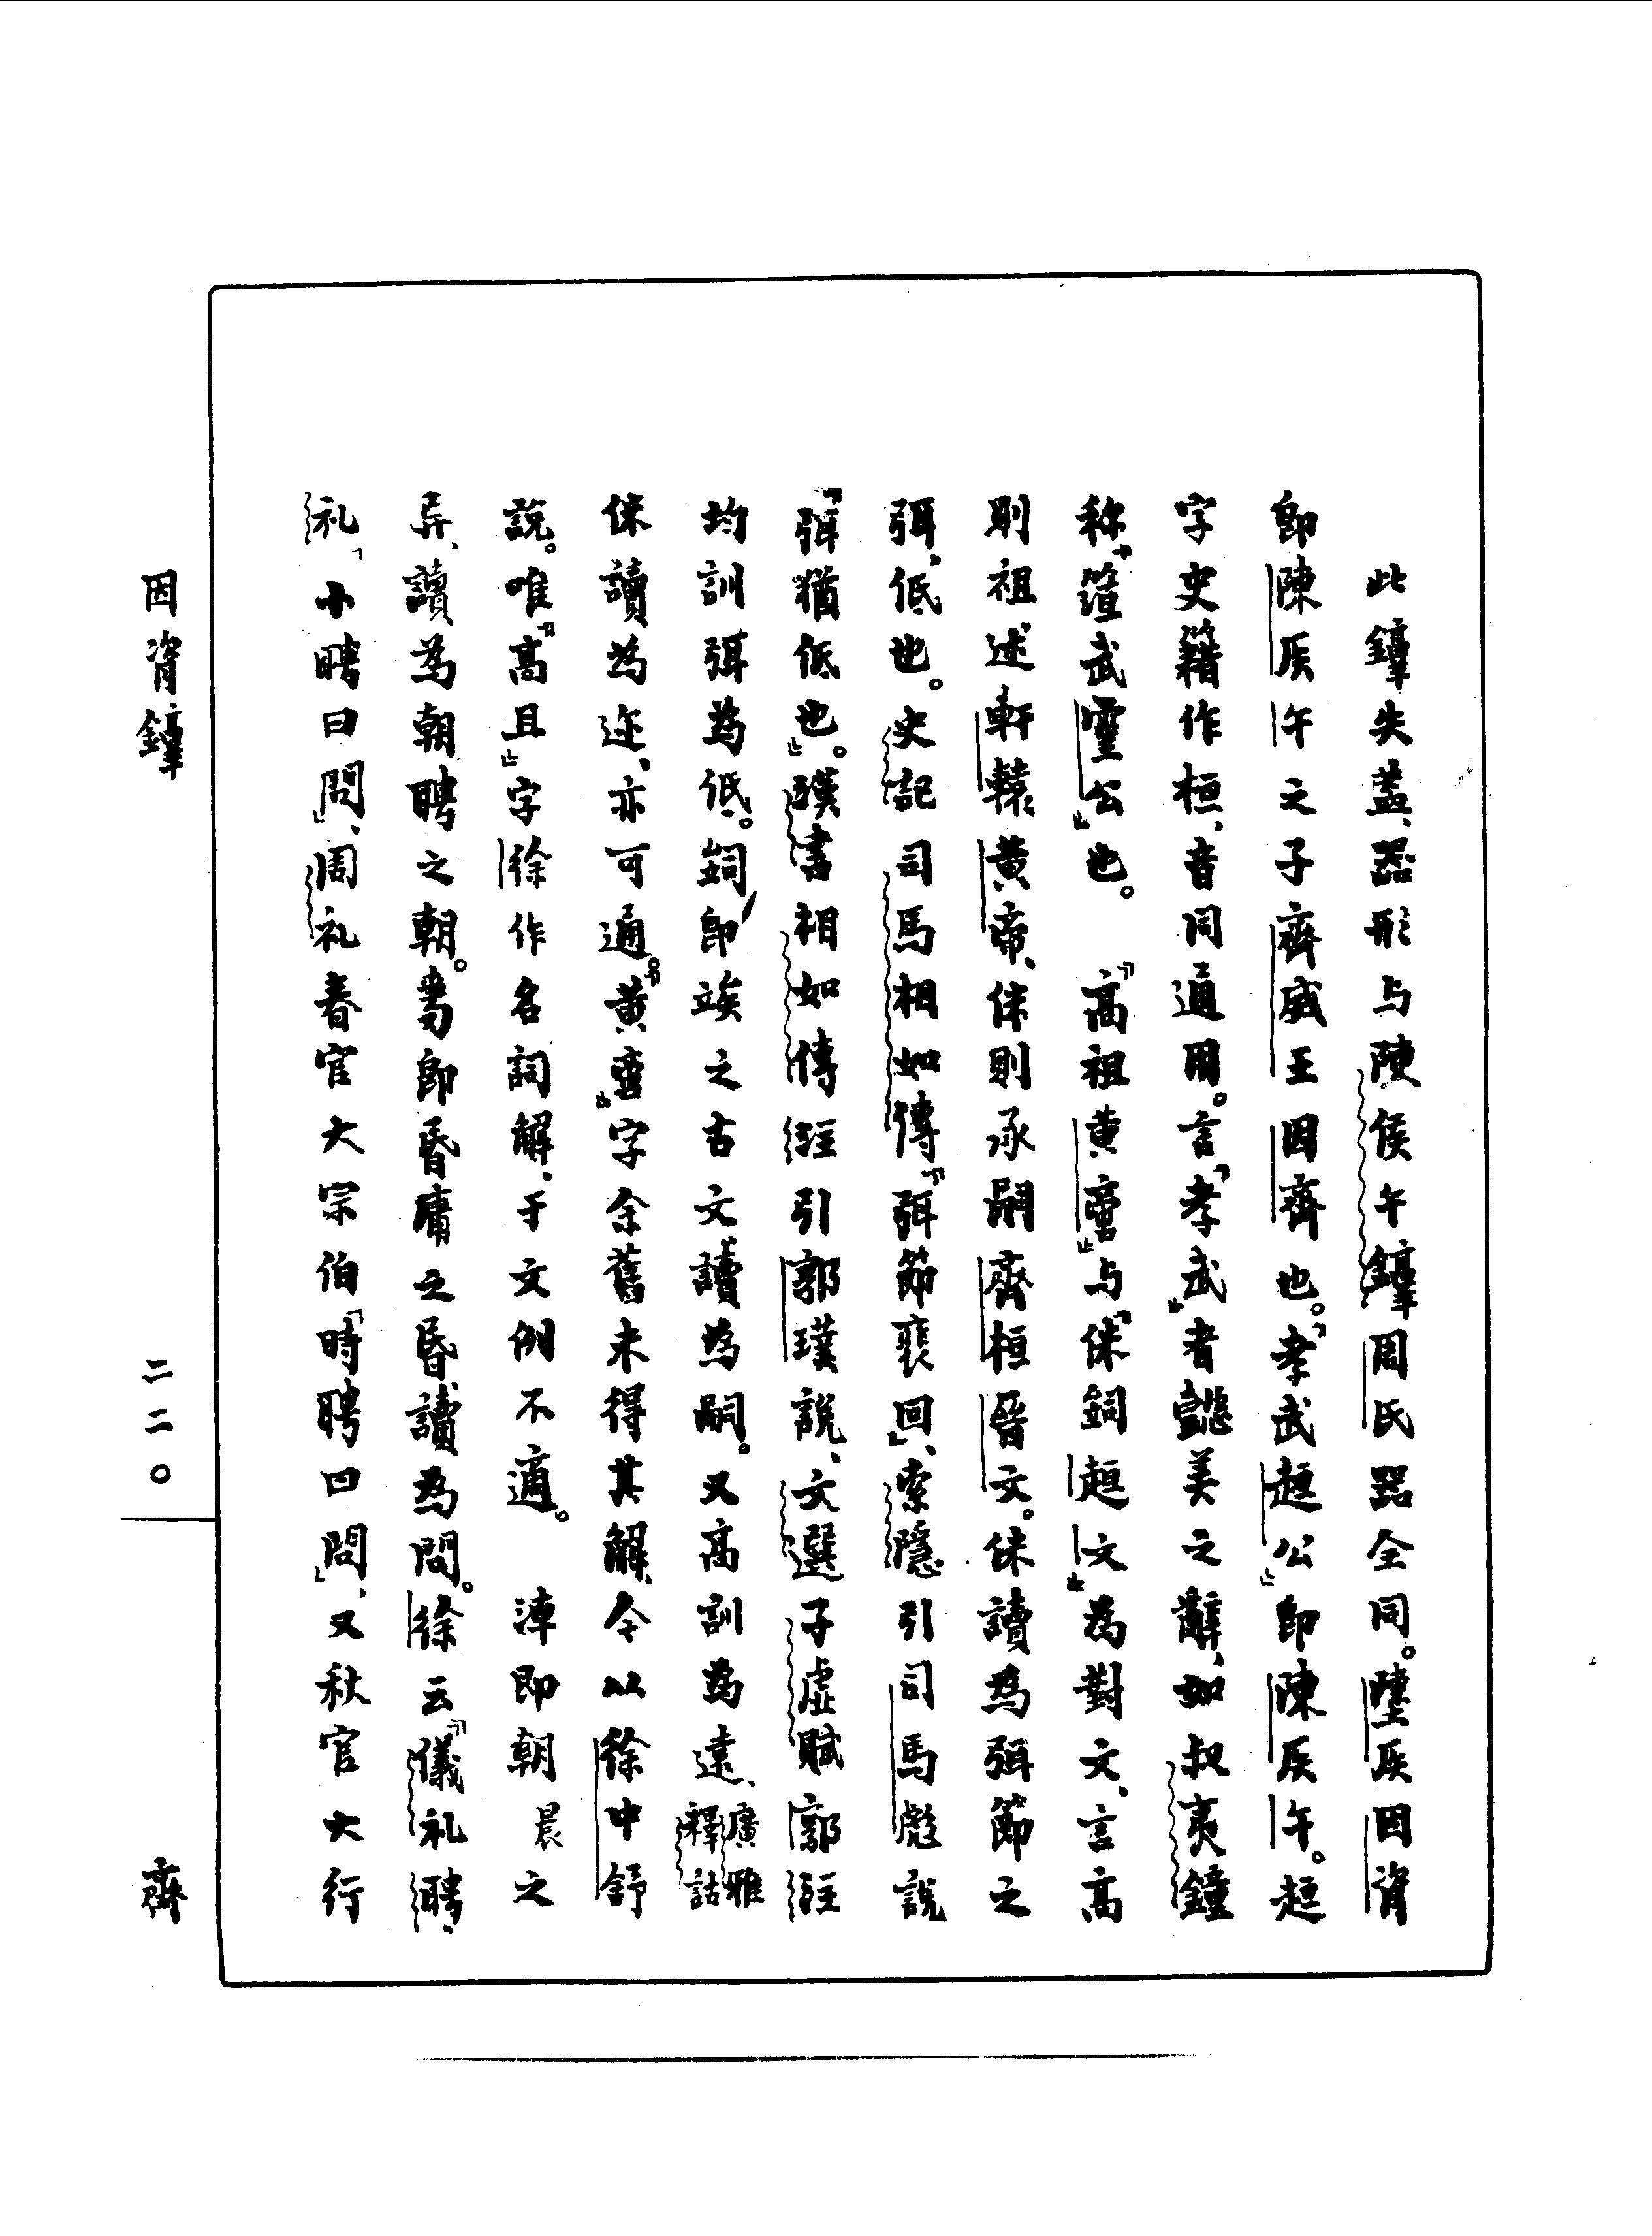 此鐘失蓋、器形与陳侯午鐘周氏器全同。墜矦因𬱖
即陳矦午之子齊威王因齊也。「孝武趄公」即陳矦午。趄
字史籍作桓、音同通用。言「孝武」者懿美之辭、如叔夷鐘
称「𥫣武靈公」也。「高祖黄啻」与「㑣𤔲趄文」為對文、言高
則祖述軒轅黄帝、㑣則承嗣齊桓晉文。㑣讀為弭節之
弭、低也。史記司馬相如傳「弭節裴回」、索隱引司馬彪說
「弭猶低也」。漢書相如傳注引郭璞說、文選子虛賦郭注
均訓弭為低。𤔲即竢之古文、讀為嗣。又高訓為遠、廣雅釋詁
㑣讀為迩、亦可通。「黄啻」字余舊未得其解、今以徐中舒
說。唯「高且」字徐作名詞解、于文例不適。 淖即朝晨之
异、讀為朝聘之朝。䎽即昏庸之昏、讀為問。徐云「儀礼聘
礼、「小聘曰問」、周礼春官大宗伯「時聘曰問」、又秋官大行
因𬱖鐘
二二〇
齊